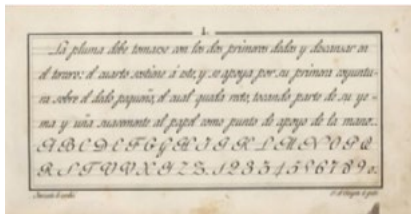 1.
La pluma debe tomarse con los dos primeros dedos y descansar en
el tercero: el cuarto sostiene á este, y se apoya por su primera coyuntu-
ra sobre el dedo pequeño, el cual queda recto, tocando parte de su ye-
ma y uña suavemente al papel como punto de apoyo de la mano.
A B C D E F G G H I J K L M N O P Q
R S T U V X Y Z Z. 1 2 3 3 4 5 6 7 8 9 0.